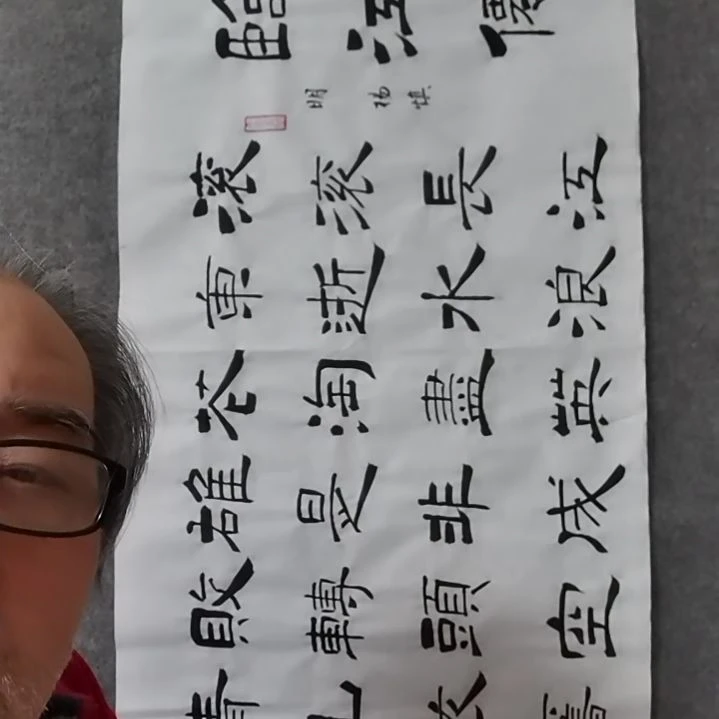 臨江僊
明 杨慎
滚滚長江
東逝水浪
花淘盡英
雄是非成
敗轉頭空